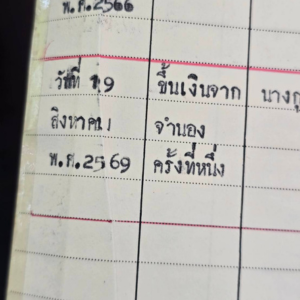 พ.ศ.2566
วันที่ 19 ขึ้นเงินจาก นางกุ
สิงหาคม จำนอง
พ.ศ.2569 ครั้งที่หนึ่ง